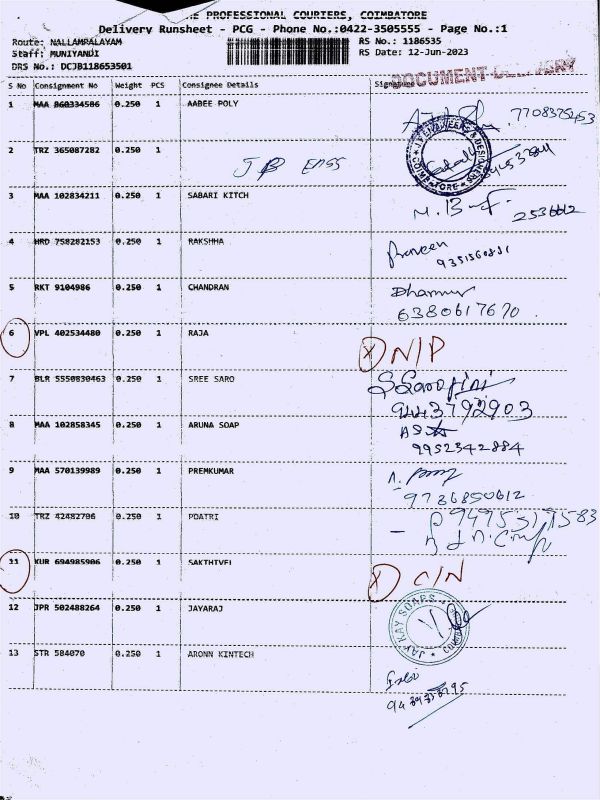 THE PROFESSIONAL COURIERS, COIMBATORE
Delivery Runsheet - PCG - Phone No.:0422-3505555 - Page No.:1
Route: NALLAMPALAYAM RS No.: 1186535
Staff: MUNIYANDI RS Date: 12-Jun-2023
DRS No.: DCJB118653501
DOCUMENT DELIVERY
S No Consignment No Weight PCS Consignee Details
1 MAA 860334506 0.250 1 AABEE POLY
2 TRZ 365087282 0.250 1 JB
3 MAA 102834211 0.250 1 SABARI KITCH
4 HRD 758282153 0.250 1 RAKSHHA Praveen
5 RKT 9104986 0.250 1 CHANDRAN
6380617670
6 VPL 402534480 0.250 1 RAJA X N/P
7 BLR 5550830463 0.250 1 SREE SARO S Sarojini
9443792903
8 MAA 102858345 0.250 1 ARUNA SOAP
9952342884
9 MAA 570139989 0.250 1 PREMKUMAR
9786850612
10 TRZ 42482706 0.250 1 POATRI
11 KUR 694985906 0.250 1 SAKTHIVEL X C/N
12 JPR 502488264 0.250 1 JAYARAJ JAY KAY SOAPS
13 STR 584070 0.250 1 ARONN KINTECH